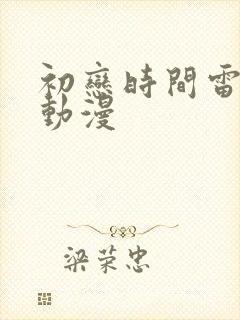 初戀時間雷
動漫
梁荣忠